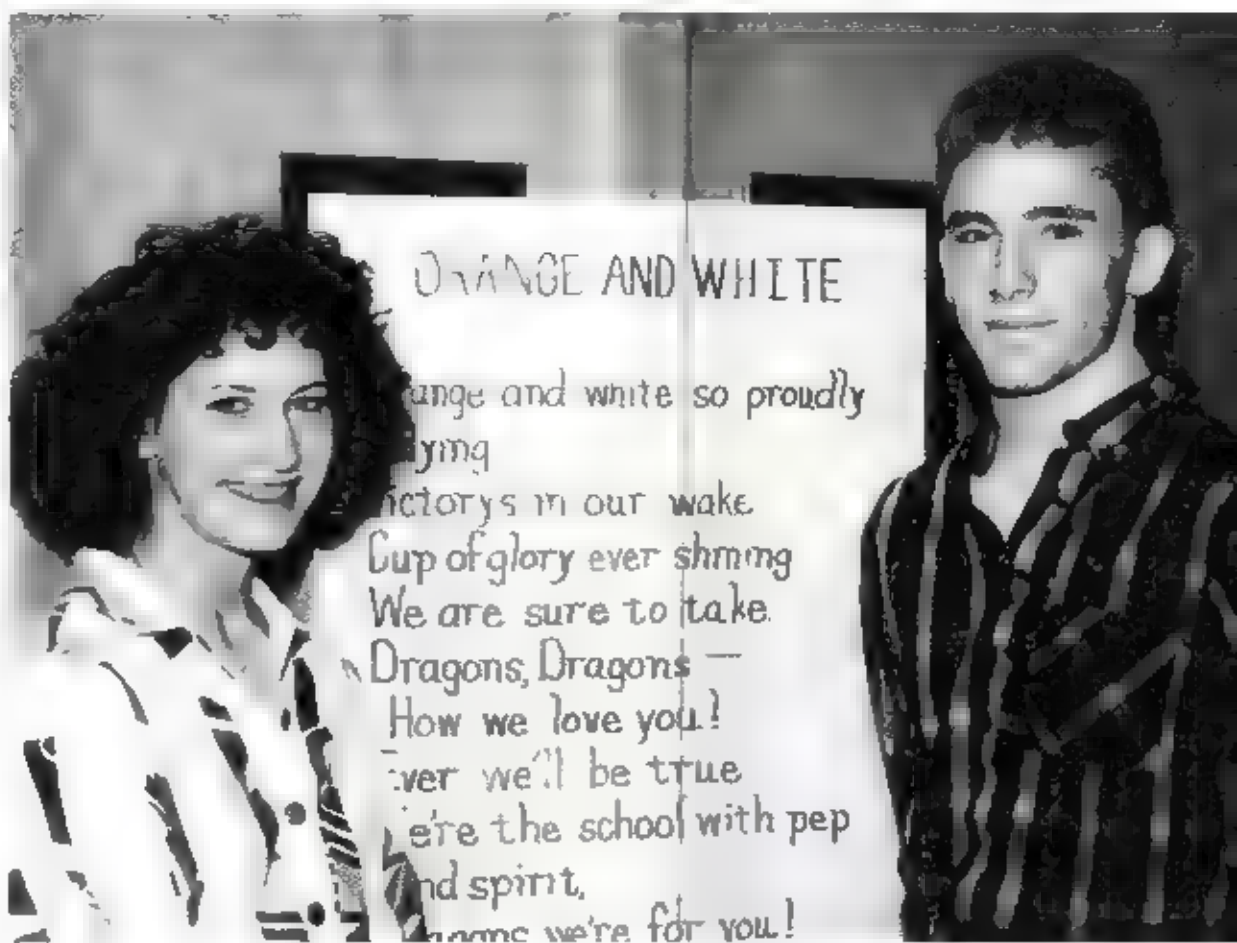 ORANGE AND WHITE
ange and white so proudly
ying
ictorys in our wake
Cup of glory ever shining
We are sure to take.
Dragons, Dragons —
How we love you!
Ever we'll be true
e're the school with pep
nd spirit,
agons we're for you!